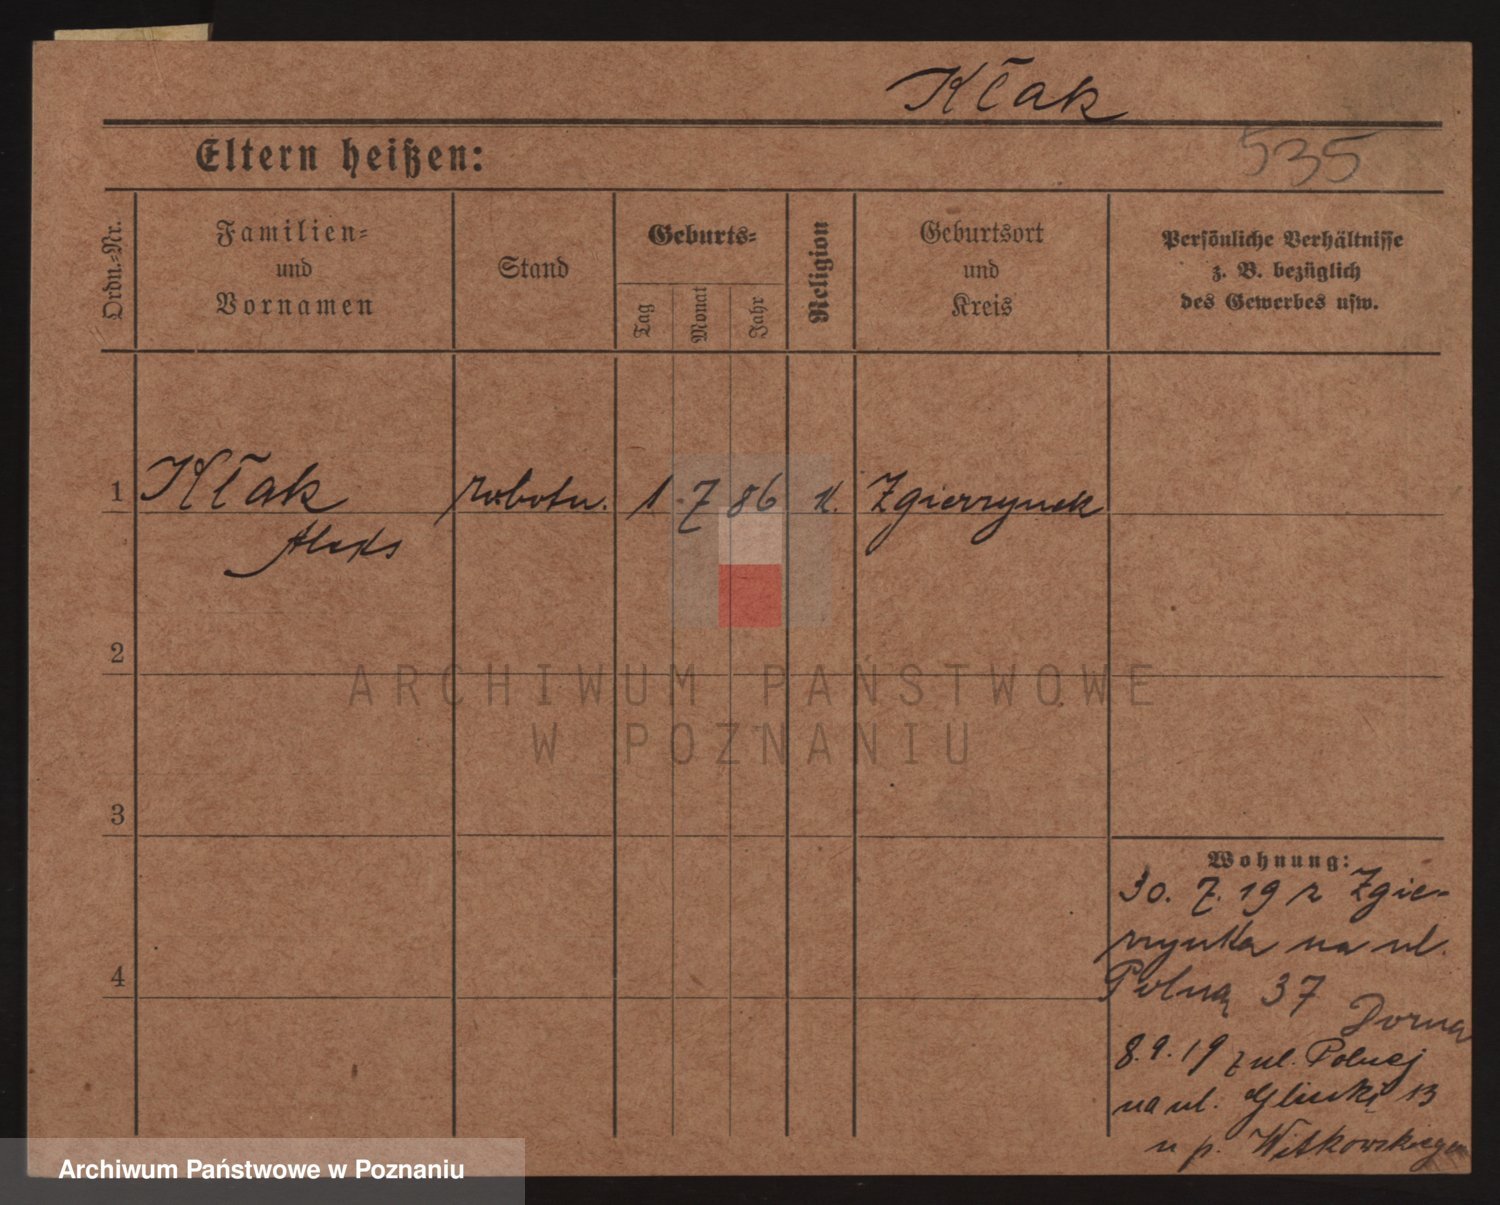 Kłak
535
Eltern heißen:
Ordn.-Nr.
Familien-
und
Vornamen
Stand
Geburts-
Tag
Monat
Jahr
Religion
Geburtsort
und
Kreis
Persönliche Verhältnisse
z. B. bezüglich
des Gewerbes usw.
1 Kłak robotn. 1 7 86 k. Zgierzynek
Aleks
2
ARCHIWUM PAŃSTWOWE
W POZNANIU
3
Wohnung:
30. 7. 19 z Zgie-
rzynka na ul.
4
Polną 37
8.9.19 z ul. Polnej
na ul. Glinki 13
u p. Witkowskiego
Archiwum Państwowe w Poznaniu